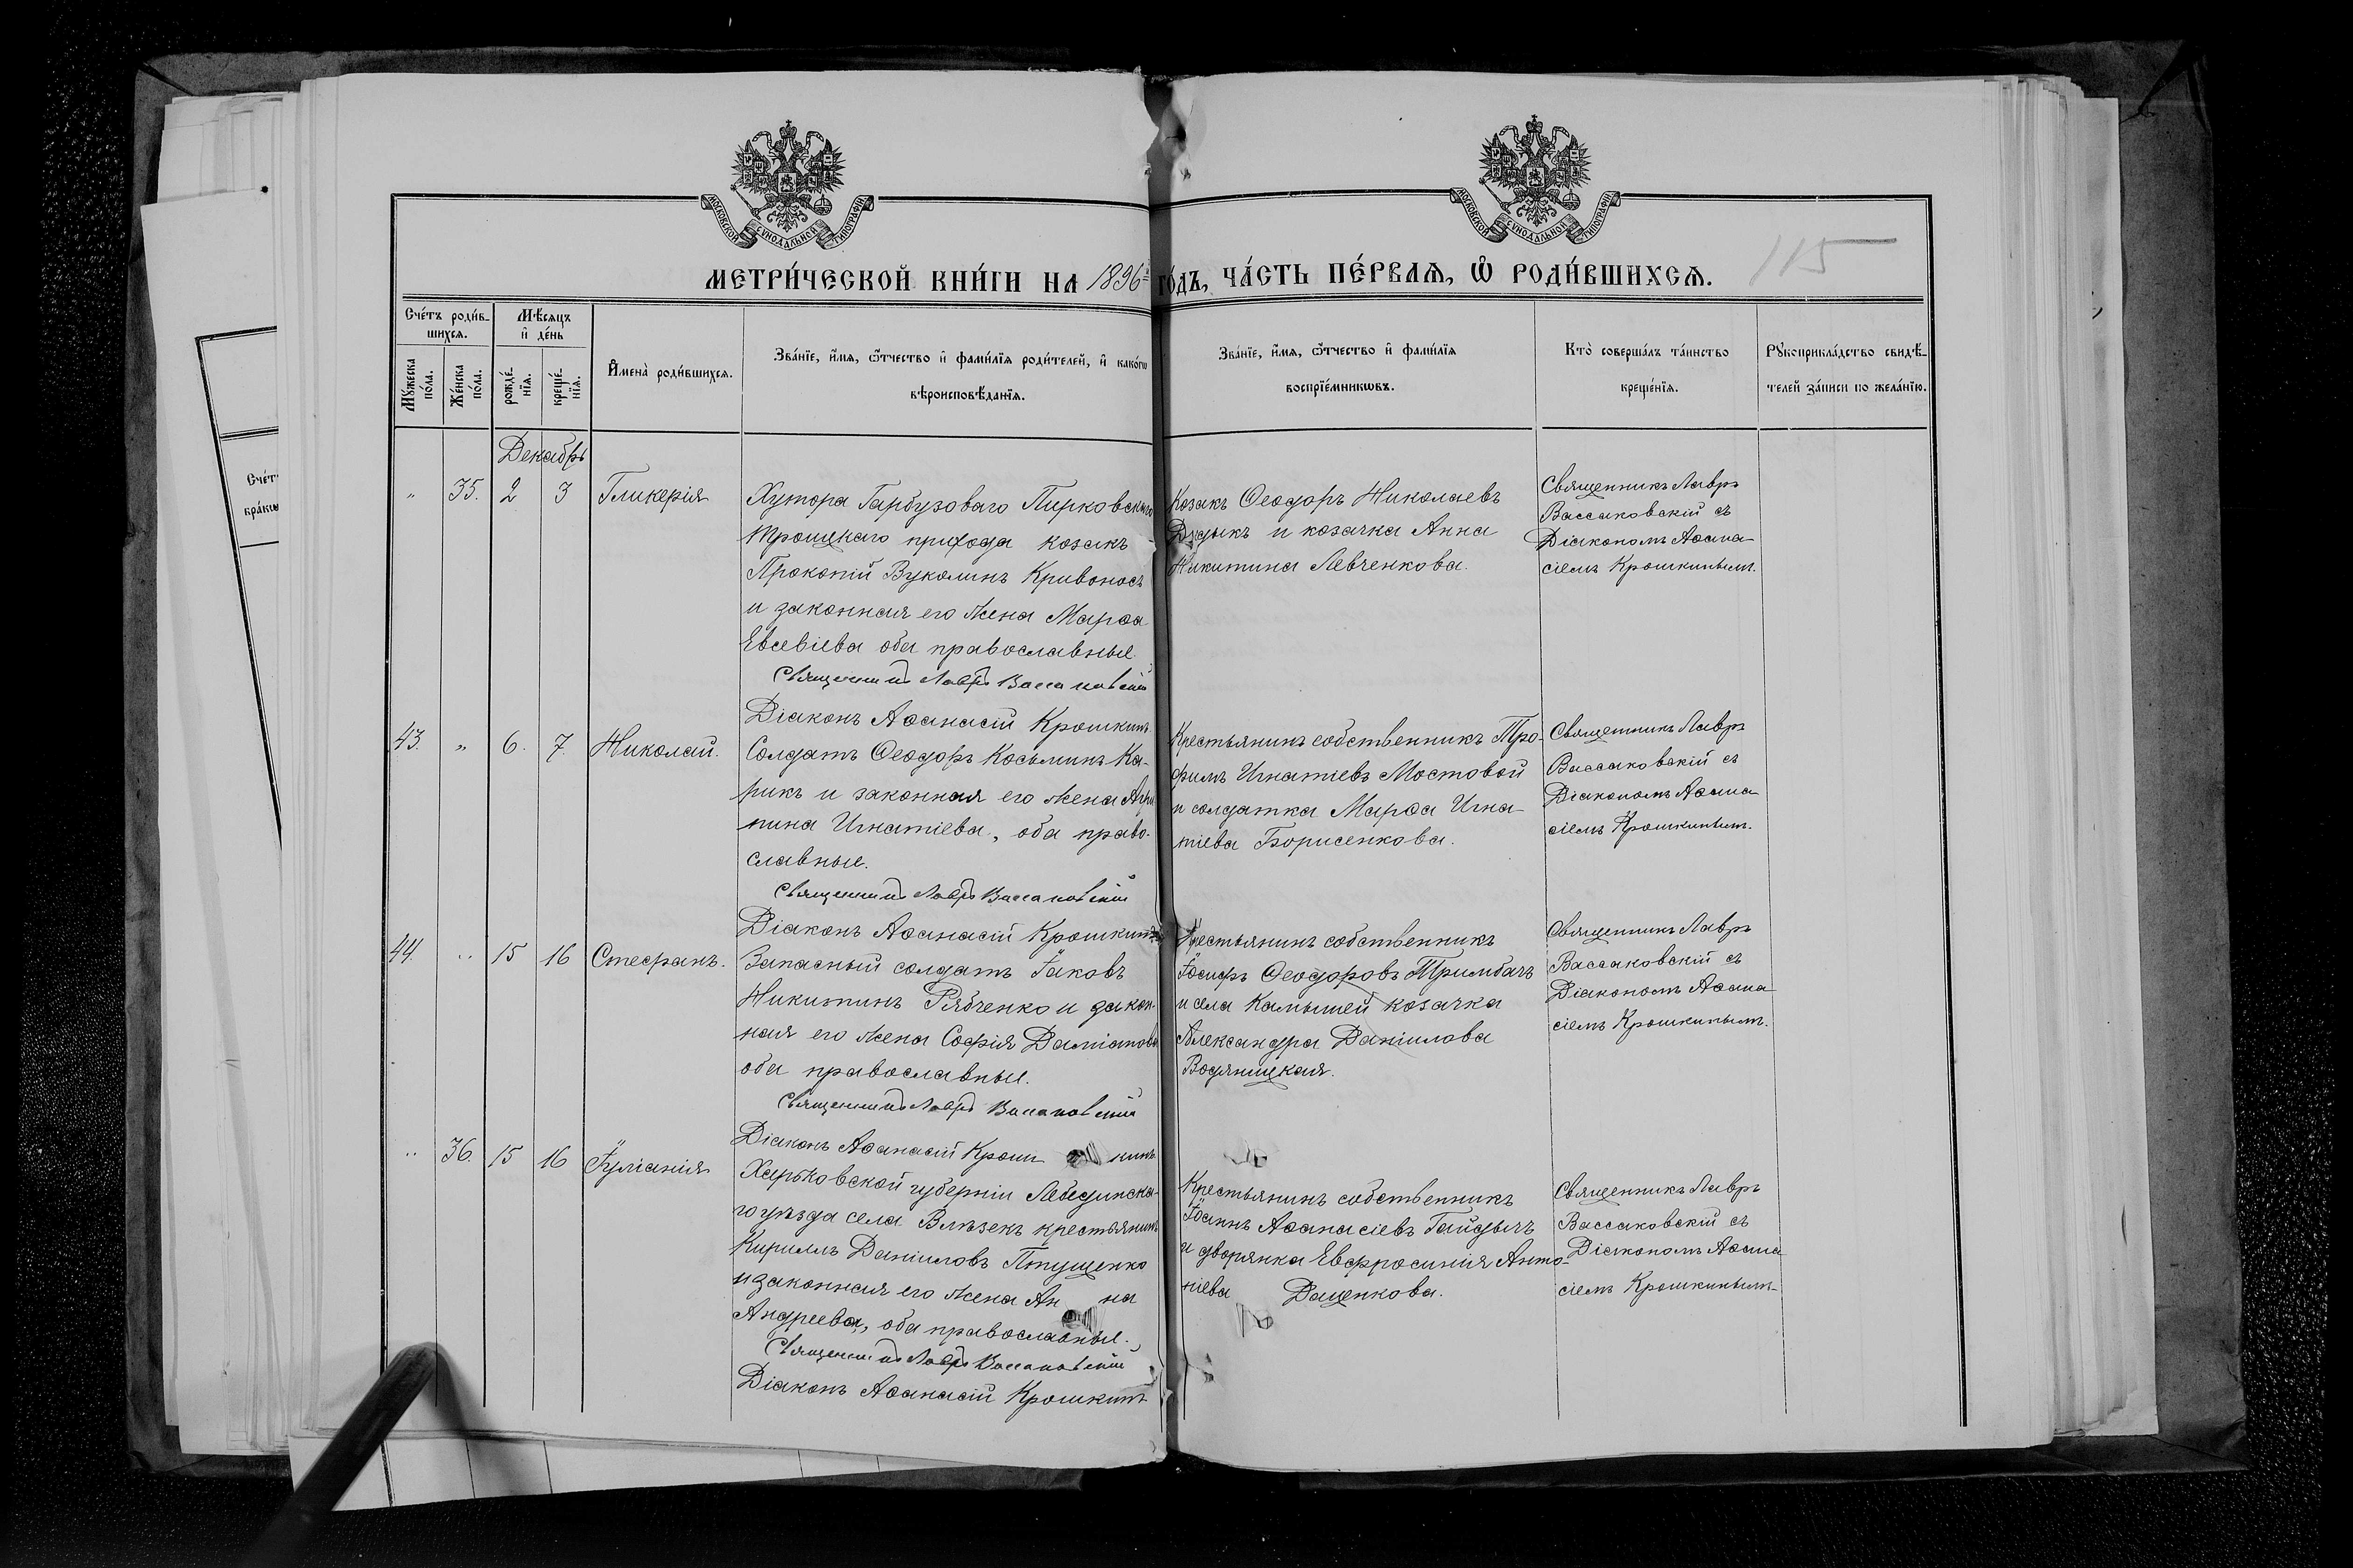 МОСКОВСКОЙ СѴНОДАЛЬНОЙ ТИПОГРАФІИ
МОСКОВСКОЙ СѴНОДАЛЬНОЙ ТИПОГРАФІИ
115
МЕТРИ́ЧЕСКОЙ КНИ́ГИ НА 1896й ГО́ДЪ, ЧА́СТЬ ПЕ́РВАЯ, Ѡ҆ РОДИ́ВШИХСЯ.
Сче́тъ роди́в-
шихся.
Мꙋ́жеска
по́ла.
Же́нска
по́ла.
Мѣ́сяцъ
и҆ де́нь
рожде́-
нїя.
креще́-
нїя.
И҆мена̀ роди́вшихся.
Зва́нїе, и҆́мя, ѻ҆́тчество и҆ фами́лїя роди́телей, и҆ како́гѡ
вѣроисповѣ́данїя.
Зва́нїе, и҆́мя, ѻ҆́тчество и҆ фами́лїя
воспрїе́мникѡвъ.
Кто̀ соверша́лъ та́инство
креще́нїя.
Рꙋкоприкла́дство свидѣ́-
телей за́писи по жела́нїю.
Декабрь
" 35. 2 3 Гликерія
Хутора Гарбузоваго Пирковскаго
Троицкаго прихода козакъ
Прокопій Вуколинъ Кривоносъ
и законная его жена Марѳа
Евсевіева оба православные.
Священникъ Лавръ Вассаковскій
Діаконъ Аѳанасій Крошкинъ
Козакъ Ѳеодоръ Николаевъ
Дудыкъ и козачка Анна
Никитина Левченкова.
Священникъ Лавръ
Вассаковскій съ
Діакономъ Аѳана-
сіемъ Крошкинымъ.
43. " 6. 7. Николай.
Солдатъ Ѳеодоръ Косьминъ Ка-
рикъ и законная его жена Агри
пина Игнатіева, оба право-
славные.
Священникъ Лавръ Вассаковскій
Діаконъ Аѳанасій Крошкинъ
Крестьянинъ собственникъ Тро-
фимъ Игнатіевъ Мостовой
и солдатка Марѳа Игна-
тіева Борисенкова.
Священникъ Лавръ
Вассаковскій съ
Діакономъ Аѳана-
сіемъ Крошкинымъ.
44. " 15 16 Стефанъ.
Запасный солдатъ Іаковъ
Никитинъ Рябченко и закон-
ная его жена Софія Даміанова
оба православные.
Священникъ Лавръ Вассаковскій
Діаконъ Аѳанасій Крошкинъ
Крестьянинъ собственникъ
Іосифъ Ѳеодоровъ Тримбачъ
и села Камышей козачка
Александра Даніилова
Водяницкая.
Священникъ Лавръ
Вассаковскій съ
Діакономъ Аѳана-
сіемъ Крошкинымъ.
" 36. 15 16 Іуліанія
Харьковской губерніи Лебединска-
го уѣзда села Влѣзекъ крестьянинъ
Кириллъ Даніиловъ Птущенко
и законная его жена Анна
Андреева, оба православные.
Священникъ Лавръ Вассаковскій
Діаконъ Аѳанасій Крошкинъ
Крестьянинъ собственникъ
Іоаннъ Аѳанасіевъ Гайдычъ
и дворянка Евфросинія Анто-
ніева Даценкова.
Священникъ Лавръ
Вассаковскій съ
Діакономъ Аѳана
сіемъ Крошкинымъ-